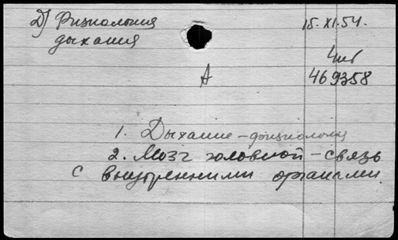 Д) Физиология
дыхания
15.XI.54.
4иб
А
469358
1. Дыхание – физиология
2. Мозг головной – связь
с внутренними органами.